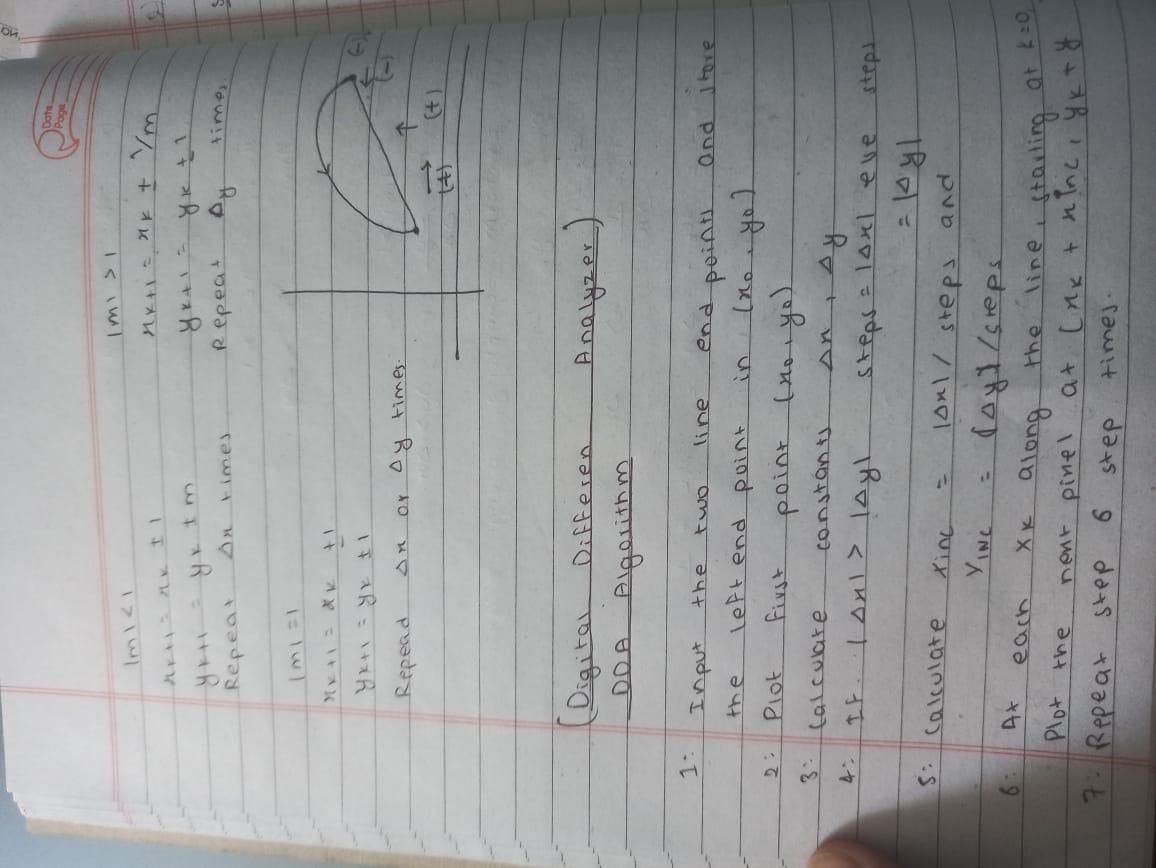 Date
Page
|m| < 1
xk+1 = xk ± 1
yk+1 = yk ± m
Repeat Δx times
|m| > 1
xk+1 = xk ± 1/m
yk+1 = yk ± 1
Repeat Δy times.
|m| = 1
xk+1 = xk ± 1
yk+1 = yk ± 1
Repead Δx or Δy times.
(-)
(-)
(+)
(+)
(Digital Differen Analyzer)
DDA Algoithm
1: Input the two line end points and store
the left end point in (x0, y0)
2: Plot first point (x0, y0)
3: Calculate constants Δx, Δy
4: If |Δx| > |Δy| steps = |Δx| else steps
= |Δy|
5: Calculate xinc = |Δx| / steps and
YINC = |Δy| / steps
6: At each xk along the line, starting at k=0,
Plot the next pixel at (xk + xinc, yk + y
7: Repeat step 6 step times.